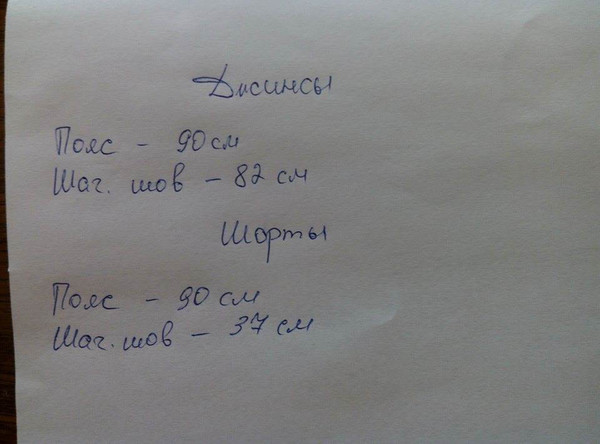 Джинсы
Пояс - 90 см
Шаг. шов - 82 см
Шорты
Пояс - 90 см
Шаг. шов - 37 см